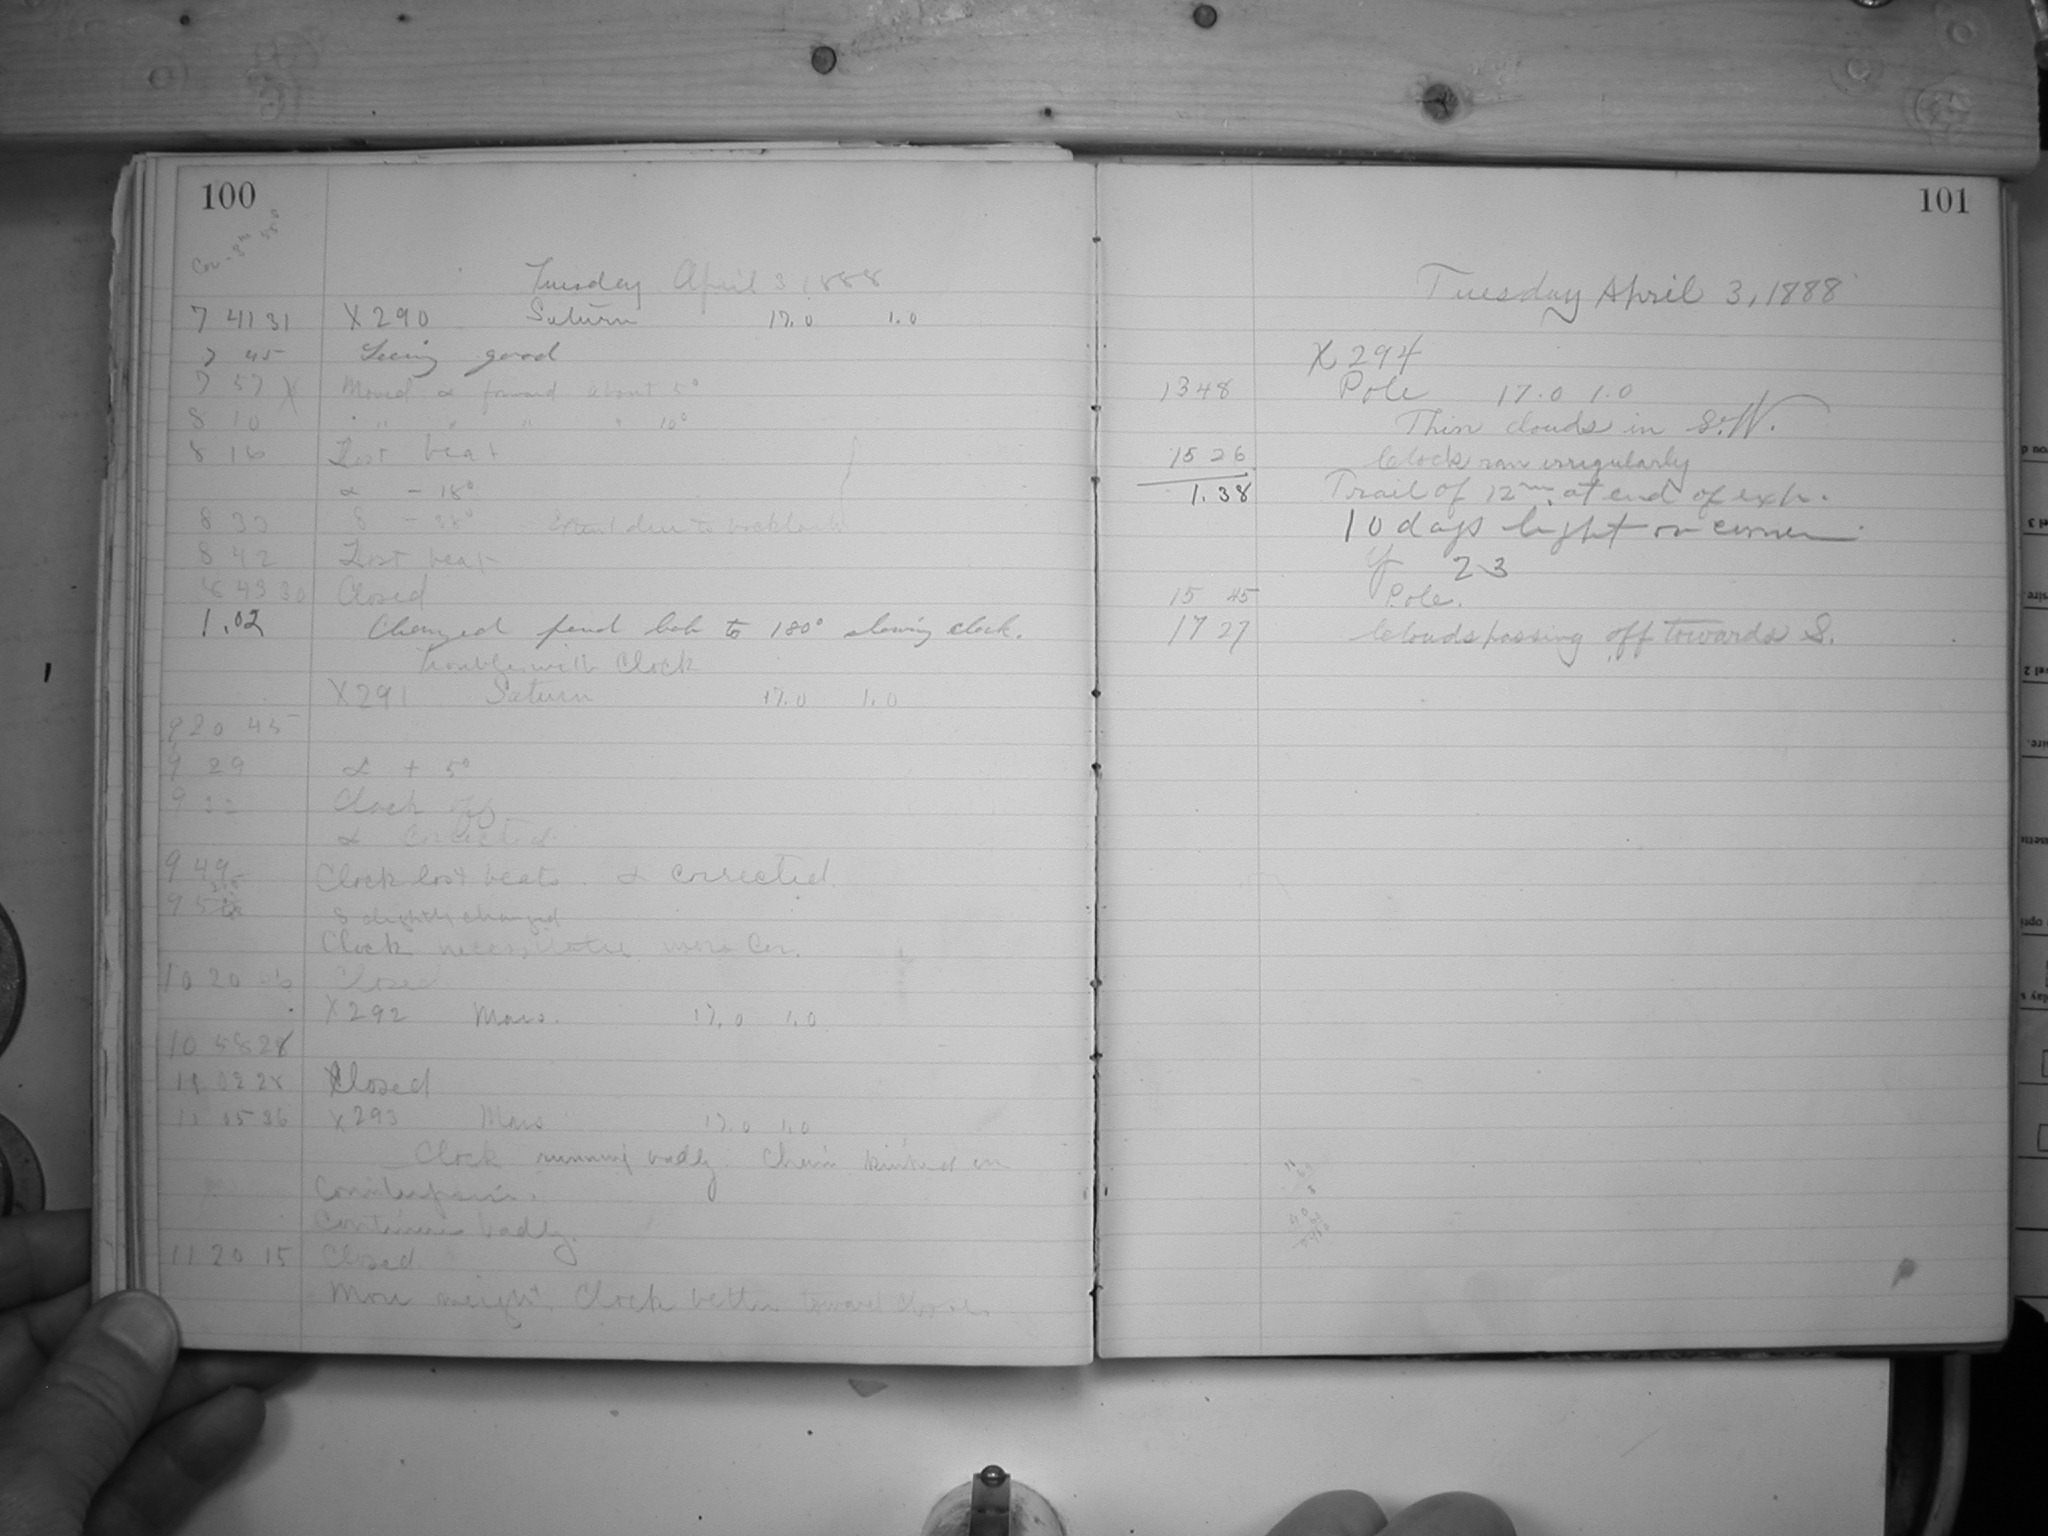 100
Tuesday April 3 1888
7 41 31 X 290 Saturn 17.0 1.0
7 45 Seeing good
7 57 Moved α forward about 5°
8 10 " " " " 10°
8 16 Lost beat
α - 18°
δ due to backlash
8 42 Lost beat
43 30 Closed
1.02 Changed pend bob to 180° slowing clock.
Trouble with Clock
X 291 Saturn 17.0 1.0
9 20 45
9 29 α + 5°
9 Clock off
α Corrected
9 49 Clock lost beats. α corrected.
9 δ slightly changed
Clock necessitates more Cor.
10 20 Closed
X 292 Mars. 17.0 1.0
10 58 28
Closed
11 05 36 X 293 Mars 17.0 1.0
Clock running badly. Chain kinked in
Counterpoise.
Continues badly.
11 20 15 Closed
More weight. Clock better toward close.
101
Tuesday April 3, 1888
X 294
13 48 Pole 17.0 1.0
Thin clouds in S.W.
15 26 Clock ran irregularly
1.38 Trail of 12m. at end of exp.
10 days light on corner
23
15 45 Pole.
17 27 Clouds passing off towards S.